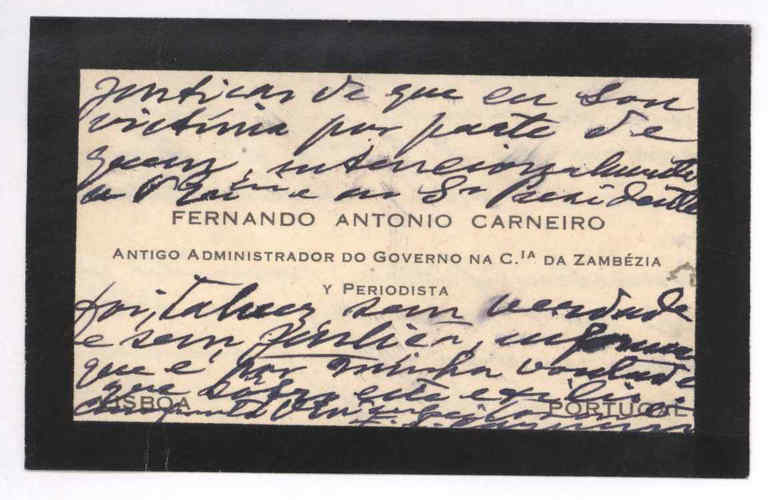 justicas de que eu sou
victima por parte de
quem, intencionalmente
e ao Sr. Presidente
FERNANDO ANTONIO CARNEIRO
ANTIGO ADMINISTRADOR DO GOVERNO NA C.IA DA ZAMBÉZIA
Y PERIODISTA
foi, talvez sem verdade
e sem justiça, informar
que é por minha vontade
que sobre este exilio
LISBOA PORTUGAL